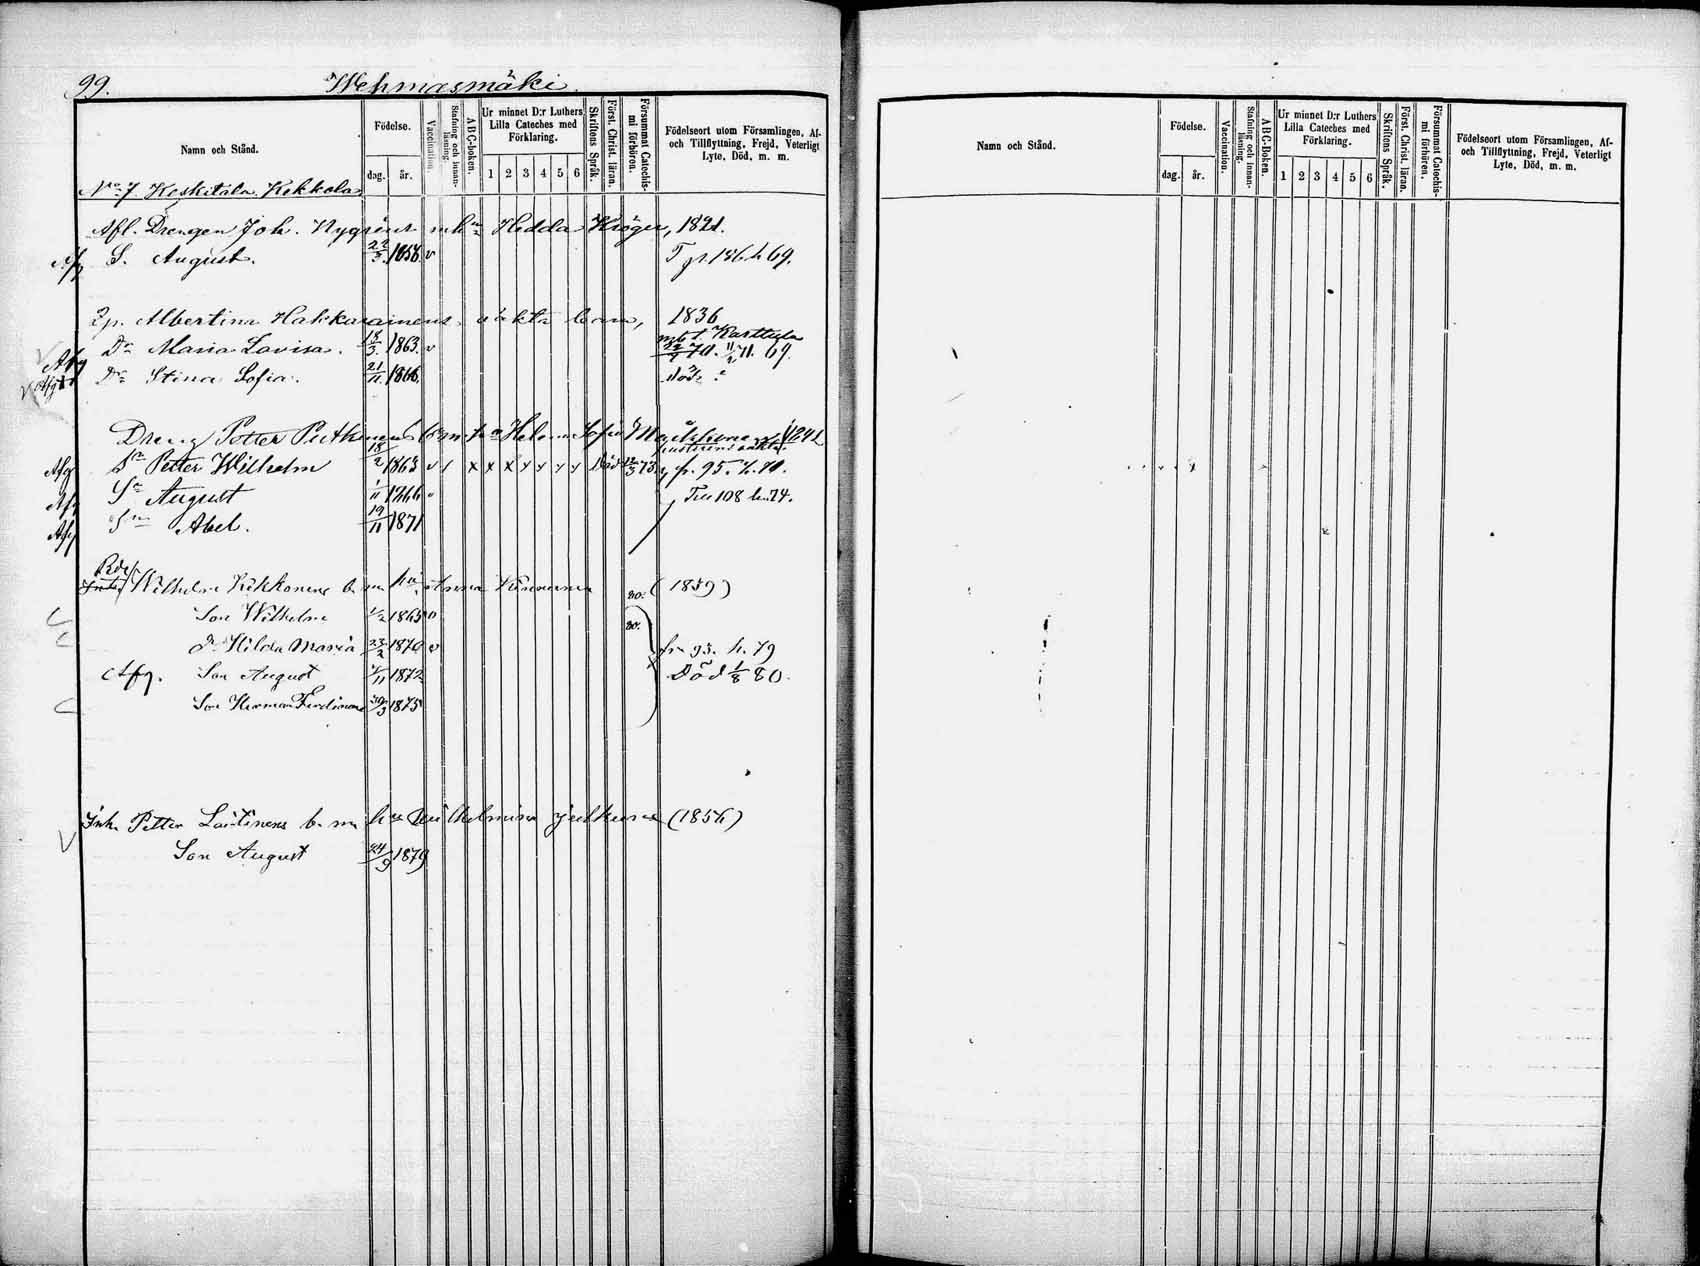 99. Wehmasmäki.
Namn och Stånd.
Födelse.
dag. år.
Vaccination.
Stafning och innan-läsning.
A B C-boken.
Ur minnet D:r Luthers Lilla Cateches med Förklaring.
1 2 3 4 5 6
Skriftens Språk.
Först. Christ. läran.
Försummat Catechis-mi förhören.
Födelseort utom Församlingen, Af- och Tillflyttning, Frejd, Veterligt Lyte, Död, m. m.
No 7. Keskitalo Kekkola
Afl. Drengen Joh. Nygréns enka Hedda Kröger, 1821.
Afg S. August. 22/3 1858 v T. fr. 136 h 69.
Lp. Albertina Hakkarainens oäkta barn, 1836
Afg Dr Maria Lovisa. 18/3 1863. v Karttula 70. 11/2 71. 69.
Afg Dr Stina Sofia. 21/11 1866. död ?
Dreng Petter Putkonens b. m. h. Helena Sofia 1842
Afg Sn Petter Wilhelm 18/2 1863 v Död 73. fr. 95. h. 70.
Afg Sn August 1/11 1866 Till 108 h. 74.
Afg Sn Abel. 19/11 1871
Wilhelm Kekkonens b. m. h. Anna 80. (1859)
Son Wilhelm 1/2 1865 v 80.
Dr Hilda Maria 23/2 1870 v fr 93. h. 79
Afg. Son August 1/11 1872 Död 1/8 80.
Son Herman Ferdinand 30/3 1875
Inh. Petter Laitinens b. m. h. Wilhelmina (1856)
Son August 24/9 1879
Namn och Stånd.
Födelse.
dag. år.
Vaccination.
Stafning och innan-läsning.
A B C-Boken.
Ur minnet D:r Luthers Lilla Cateches med Förklaring.
1 2 3 4 5 6
Skriftens Språk.
Först. Christ. läran.
Försummat Catechis-mi förhören.
Födelseort utom Församlingen, Af- och Tillflyttning, Frejd, Veterligt Lyte, Död, m. m.